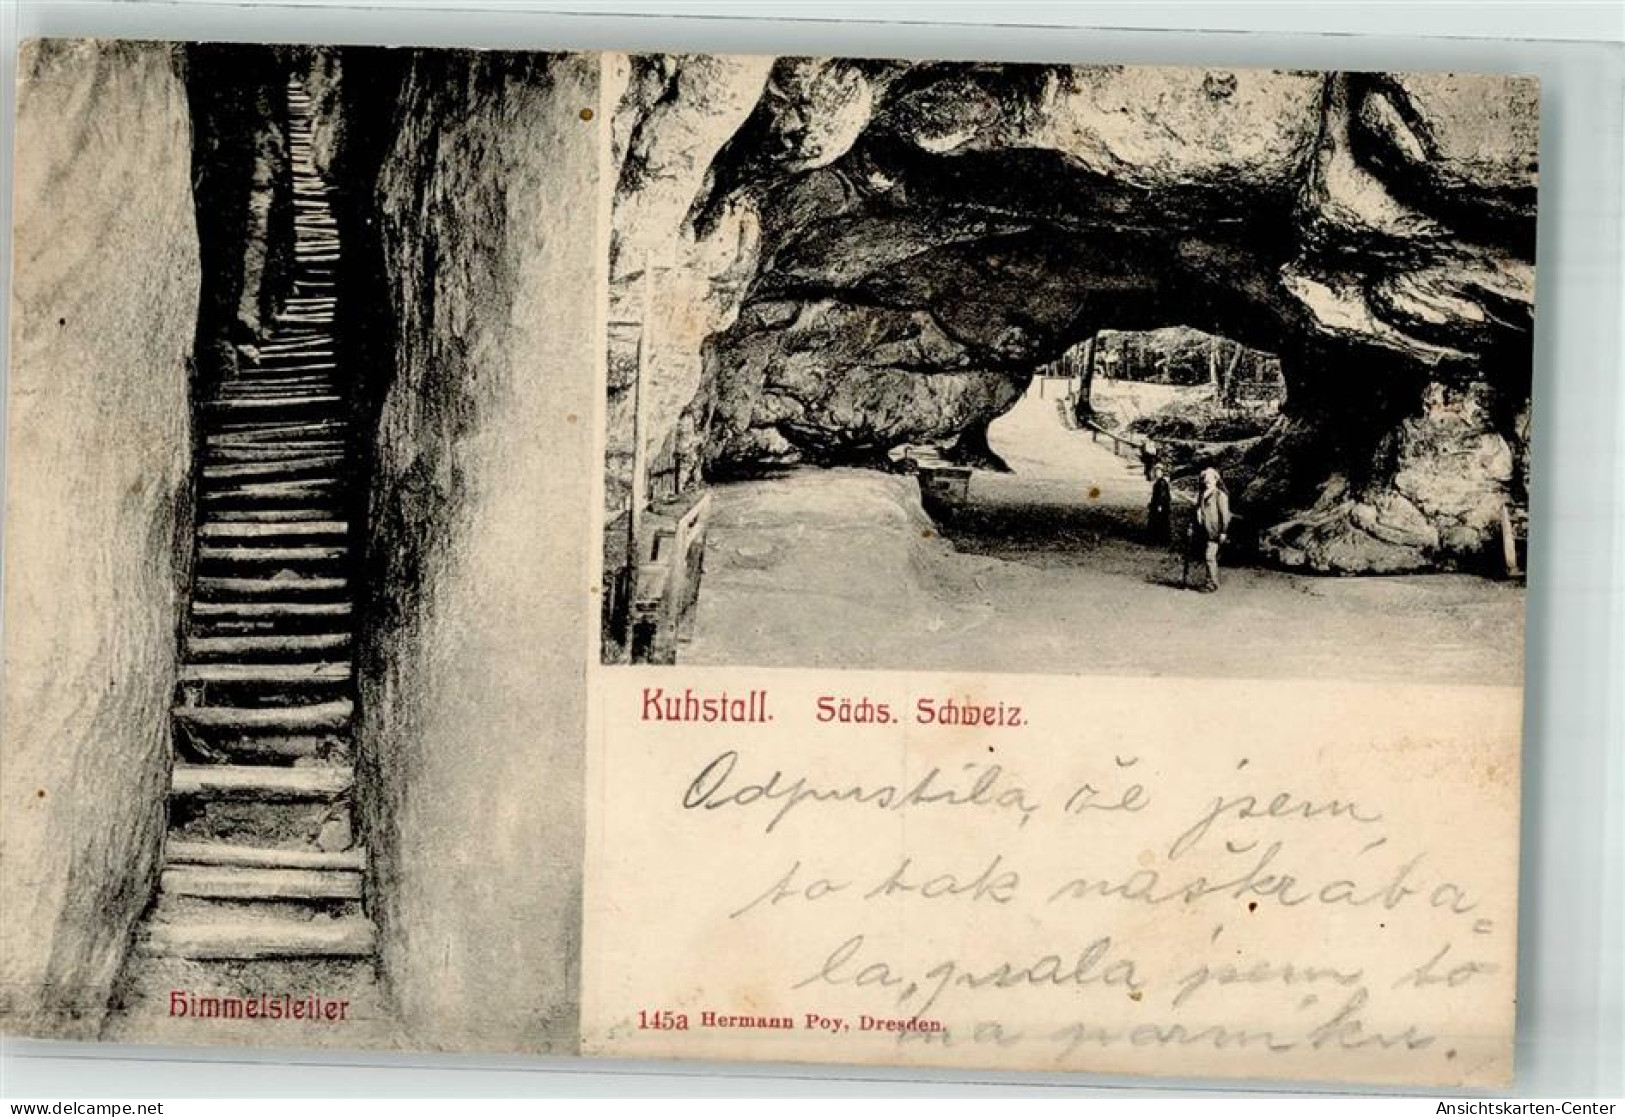 Kuhstall. Sächs. Schweiz.
Odpustila, že jsem
to tak naškrába=
la, psala jsem to
na parníku.
Himmelsleiter
145a Hermann Poy, Dresden.
Ansichtskarten-Center